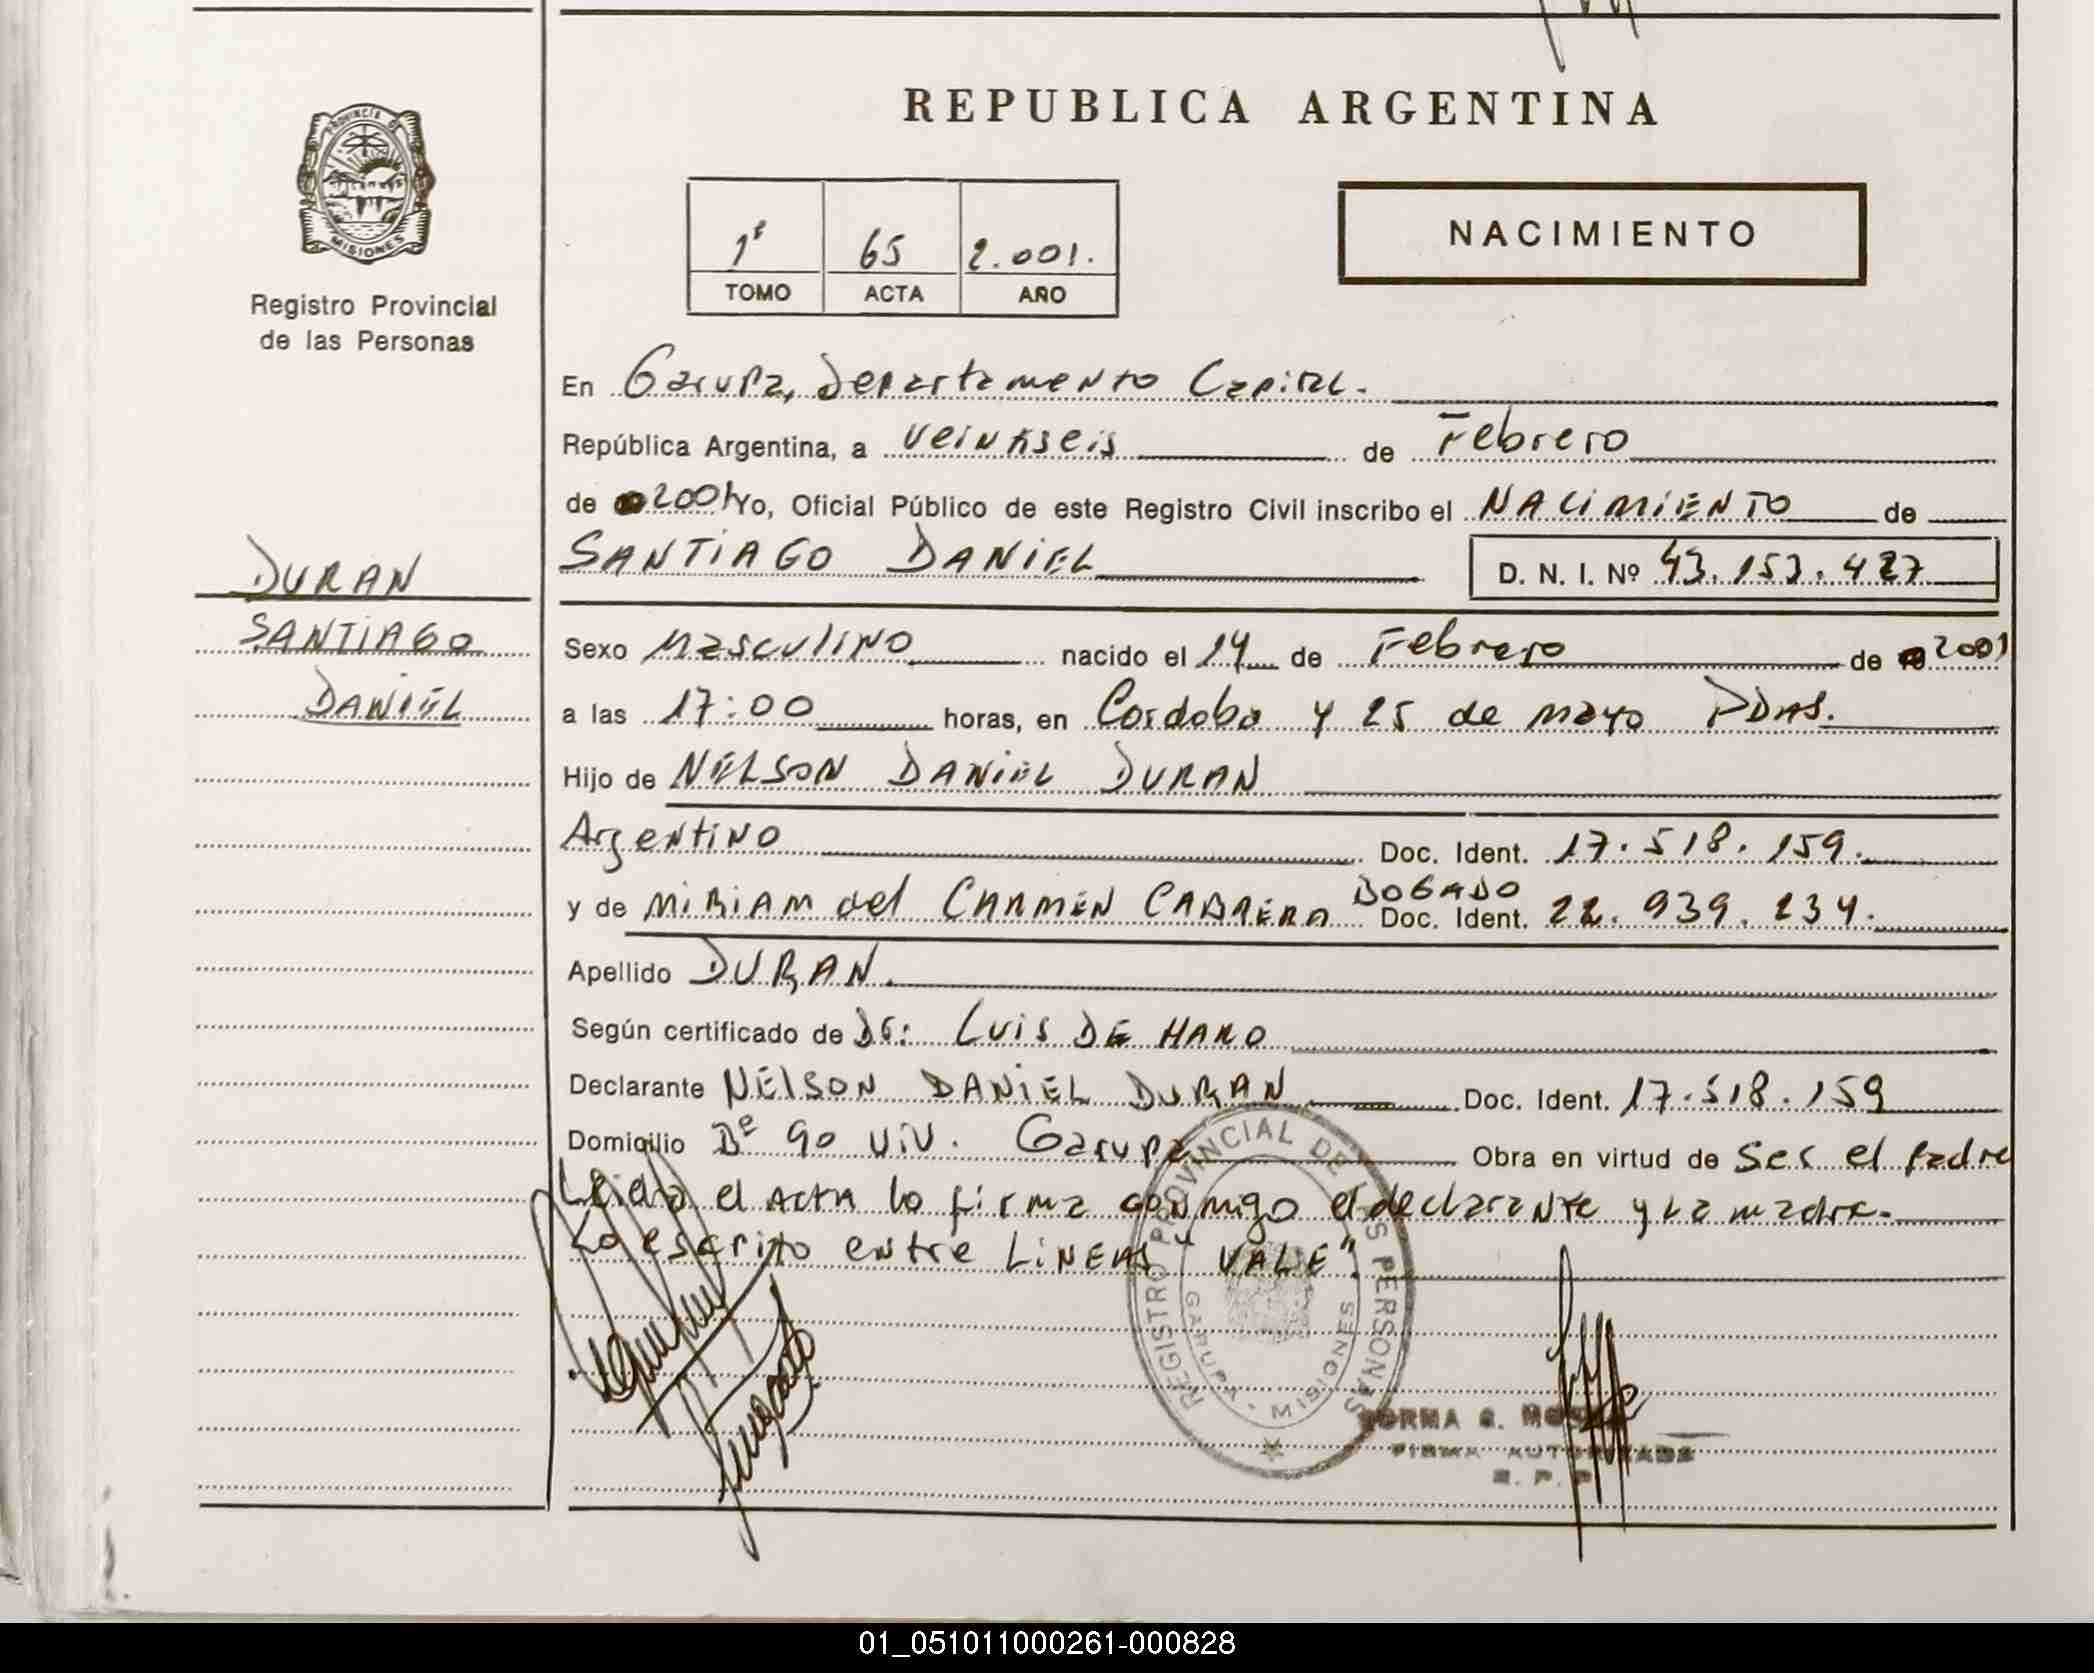 REPUBLICA ARGENTINA
PROVINCIA DE
MISIONES
Registro Provincial
de las Personas
1º 65 2.001.
TOMO ACTA AÑO
NACIMIENTO
En Garupa, Departamento Capital.
República Argentina, a veintiseis de Febrero
de 2001 Yo, Oficial Público de este Registro Civil inscribo el NACIMIENTO de
SANTIAGO DANIEL D. N. I. Nº 43.153.427
DURAN
SANTIAGO
DANIEL
Sexo Masculino nacido el 14 de Febrero de 2001
a las 17:00 horas, en Cordoba y 25 de mayo PDAS.
Hijo de NELSON DANIEL DURAN
Argentino Doc. Ident. 17.518.159.
y de MIRIAM del CARMEN CABRERA DOGADO Doc. Ident. 22.939.234.
Apellido DURAN.
Según certificado de Dr: LUIS DE HARO
Declarante NELSON DANIEL DURAN Doc. Ident. 17.518.159
Domicilio Bº 90 viv. Garupa Obra en virtud de Ser el padre
Leida el Acta lo firma conmigo el declarante y la madre.
Lo escrito entre LINEAS "VALE".
REGISTRO PROVINCIAL DE LAS PERSONAS
GARUPA - MISIONES
NORMA G.
FIRMA AUTORIZADA
R. P. P.
01_051011000261-000828